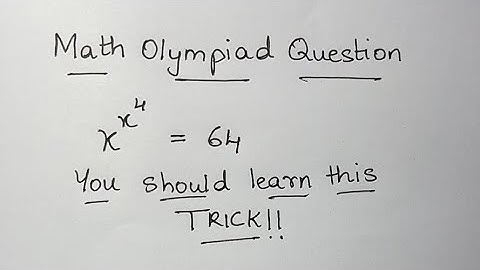 Math Olympiad Question
x^x^4 = 64
You should learn this
TRICK!!